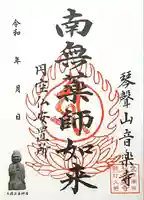 琴聲山音楽寺
南無薬師如来
円空仏安置所
令和 年 月 日